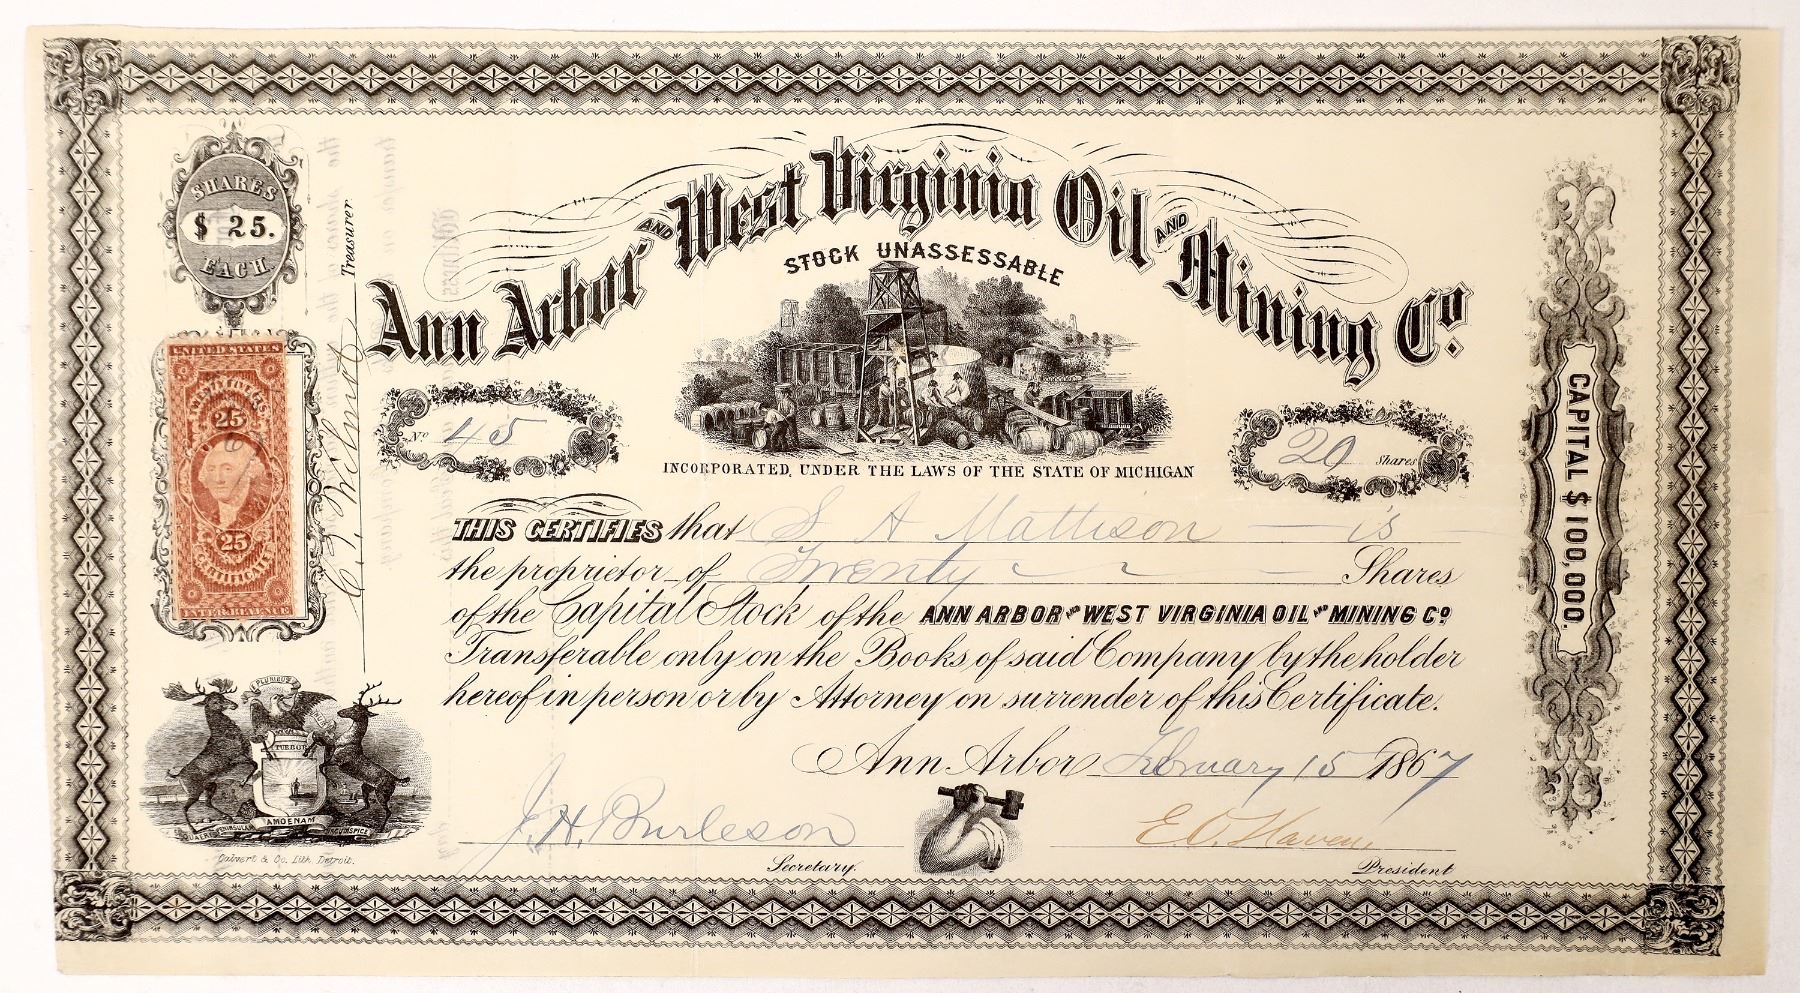 SHARES
$ 25.
EACH.
Treasurer
UNITED STATES
25
25
CERTIFICATE
INTER. REVENUE
Ann Arbor AND West Virginia Oil AND Mining Co.
STOCK UNASSESSABLE
No 45
20 Shares
INCORPORATED, UNDER THE LAWS OF THE STATE OF MICHIGAN
THIS CERTIFIES that S A Mattison is
the proprietor of Twenty Shares
of the Capital Stock of the ANN ARBOR AND WEST VIRGINIA OIL AND MINING Co
Transferable only on the Books of said Company by the holder
hereof in person or by Attorney on surrender of this Certificate.
Ann Arbor February 15 1867
J. H. Burleson
Secretary.
E. O. Haven
President
CAPITAL $100,000.
PLURIBUS
TUEBOR
AMOENAM
CIRCUMSPICE
Calvert & Co. Lith. Detroit.